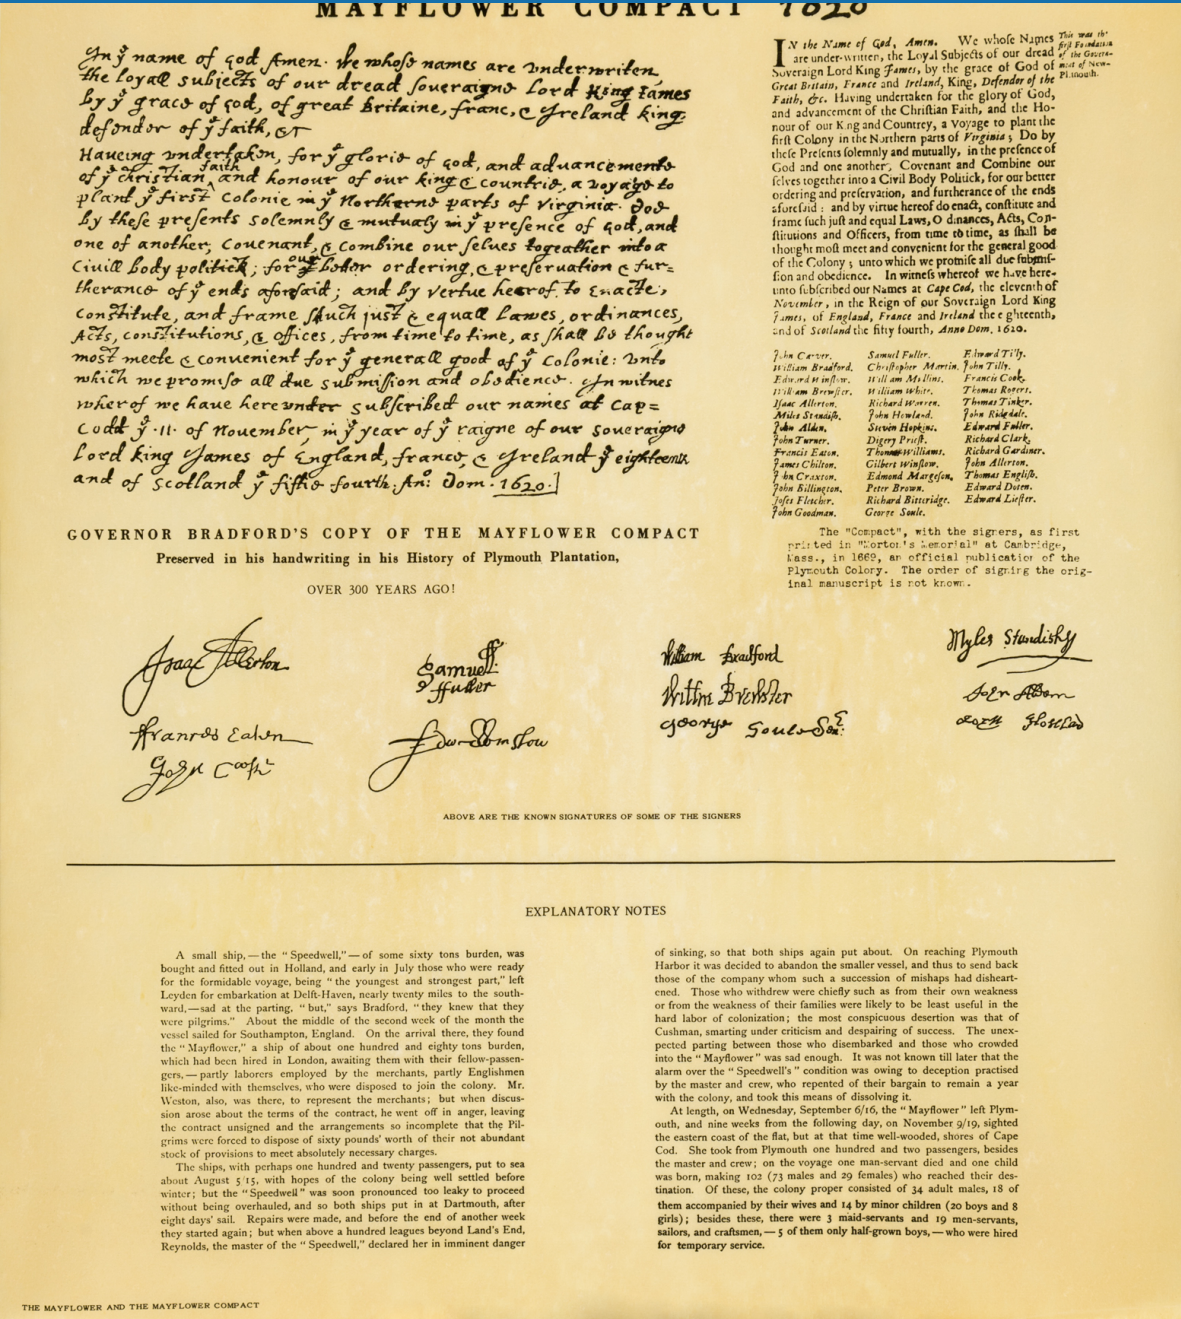 MAYFLOWER COMPACT 1620
In yͤ name of god Amen. We whose names are underwriten,
the loyall subjects of our dread soueraigne Lord King James
by yͤ grace of god, of great Britaine, franc, & Ireland king,
defender of yͤ faith, &c
Haueing undertaken, for yͤ glorie of god, and aduancemente
of yͤ christian faith and honour of our king & countrie, a voyage to
plant yͤ first Colonie in yͤ Northerne parts of Virginia. Doe
by these presents solemnly & mutualy in yͤ presence of god, and
one of another, Couenant, & Combine our selues togeather into a
Ciuill body politick; for our better ordering, & preseruation & fur=
therance of yͤ ends aforesaid; and by Vertue hearof, to Enacte,
Constitute, and frame shuch just & equall Lawes, ordinances,
Acts, constitutions, & offices, from time to time, as shall be thought
most meete & conuenient for yͤ generall good of yͤ Colonie: Unto
which we promise all due submission and obedience. In witnes
wherof we have hereunder subscribed our names at Cap=
Codd yͤ .11. of November, in yͤ year of yͤ raigne of our soueraigne
Lord king James of England, france, & Ireland yͤ eighteenth
and of Scotland yͤ fiftie fourth. An: Dom. 1620.
GOVERNOR BRADFORD'S COPY OF THE MAYFLOWER COMPACT
Preserved in his handwriting in his History of Plymouth Plantation,
OVER 300 YEARS AGO!
IN the Name of God, Amen. We whose Names
are under-written, the Loyal Subjects of our dread
Soveraign Lord King James, by the grace of God of
Great Britain, France and Ireland, King, Defender of the
Faith, &c. Having undertaken for the glory of God,
and advancement of the Chriſtian Faith, and the Ho-
nour of our King and Countrey, a Voyage to plant the
firſt Colony in the Northern parts of Virginia; Do by
theſe Preſents ſolemnly and mutually, in the preſence of
God and one another, Covenant and Combine our
ſelves together into a Civil Body Politick, for our better
ordering and preſervation, and furtherance of the ends
aforeſaid : and by virtue hereof do enact, conſtitute and
frame ſuch juſt and equal Laws, O dinances, Acts, Con-
ſtitutions and Officers, from time to time, as ſhall be
thought moſt meet and convenient for the general good
of the Colony; unto which we promiſe all due ſubmiſ-
ſion and obedience. In witneſs whereof we have here-
unto ſubſcribed our Names at Cape Cod, the eleventh of
November, in the Reign of our Soveraign Lord King
James, of England, France and Ireland the eighteenth,
and of Scotland the fifty fourth, Anno Dom. 1620.
This was the
firſt Foundation
of the Govern-
ment of New-
Plimouth.
John Carver. Samuel Fuller. Edward Tilly.
William Bradford. Chriſtopher Martin. John Tilly.
Edward Winſlow. William Mullins. Francis Cook.
William Brewſter. William White. Thomas Rogers.
Iſaac Allerton. Richard Warren. Thomas Tinker.
Miles Standiſh. John Howland. John Ridgdale.
John Alden. Steven Hopkins. Edward Fuller.
John Turner. Digery Prieſt. Richard Clark.
Francis Eaton. Thomas Williams. Richard Gardiner.
James Chilton. Gilbert Winſlow. John Allerton.
John Craxton. Edmond Margeſon. Thomas Engliſh.
John Billington. Peter Brown. Edward Doten.
Joſes Fletcher. Richard Bitteridge. Edward Lieſter.
John Goodman. George Soule.
The "Compact", with the signers, as first
printed in "Morton's Memorial" at Cambridge,
Mass., in 1669, an official publication of the
Plymouth Colony. The order of signing the orig-
inal manuscript is not known.
Isaac Allerton
Samuell ffuller
William Bradford
Myles Standish
Willm Brewster
John Alden
Frances Eaton
Edw: Winslow
George Soule Senr:
John Howland
John Cooke
ABOVE ARE THE KNOWN SIGNATURES OF SOME OF THE SIGNERS
EXPLANATORY NOTES
A small ship, — the “ Speedwell,” — of some sixty tons burden, was
bought and fitted out in Holland, and early in July those who were ready
for the formidable voyage, being “ the youngest and strongest part,” left
Leyden for embarkation at Delft-Haven, nearly twenty miles to the south-
ward, — sad at the parting, “ but,” says Bradford, “ they knew that they
were pilgrims.” About the middle of the second week of the month the
vessel sailed for Southampton, England. On the arrival there, they found
the “ Mayflower,” a ship of about one hundred and eighty tons burden,
which had been hired in London, awaiting them with their fellow-passen-
gers, — partly laborers employed by the merchants, partly Englishmen
like-minded with themselves, who were disposed to join the colony. Mr.
Weston, also, was there, to represent the merchants; but when discus-
sion arose about the terms of the contract, he went off in anger, leaving
the contract unsigned and the arrangements so incomplete that the Pil-
grims were forced to dispose of sixty pounds' worth of their not abundant
stock of provisions to meet absolutely necessary charges.
The ships, with perhaps one hundred and twenty passengers, put to sea
about August 5/15, with hopes of the colony being well settled before
winter; but the “ Speedwell ” was soon pronounced too leaky to proceed
without being overhauled, and so both ships put in at Dartmouth, after
eight days' sail. Repairs were made, and before the end of another week
they started again; but when above a hundred leagues beyond Land's End,
Reynolds, the master of the “ Speedwell,” declared her in imminent danger
of sinking, so that both ships again put about. On reaching Plymouth
Harbor it was decided to abandon the smaller vessel, and thus to send back
those of the company whom such a succession of mishaps had disheart-
ened. Those who withdrew were chiefly such as from their own weakness
or from the weakness of their families were likely to be least useful in the
hard labor of colonization; the most conspicuous desertion was that of
Cushman, smarting under criticism and despairing of success. The unex-
pected parting between those who disembarked and those who crowded
into the “ Mayflower ” was sad enough. It was not known till later that the
alarm over the “ Speedwell's ” condition was owing to deception practised
by the master and crew, who repented of their bargain to remain a year
with the colony, and took this means of dissolving it.
At length, on Wednesday, September 6/16, the “ Mayflower ” left Plym-
outh, and nine weeks from the following day, on November 9/19, sighted
the eastern coast of the flat, but at that time well-wooded, shores of Cape
Cod. She took from Plymouth one hundred and two passengers, besides
the master and crew; on the voyage one man-servant died and one child
was born, making 102 (73 males and 29 females) who reached their des-
tination. Of these, the colony proper consisted of 34 adult males, 18 of
them accompanied by their wives and 14 by minor children (20 boys and 8
girls); besides these, there were 3 maid-servants and 19 men-servants,
sailors, and craftsmen, — 5 of them only half-grown boys, — who were hired
for temporary service.
THE MAYFLOWER AND THE MAYFLOWER COMPACT